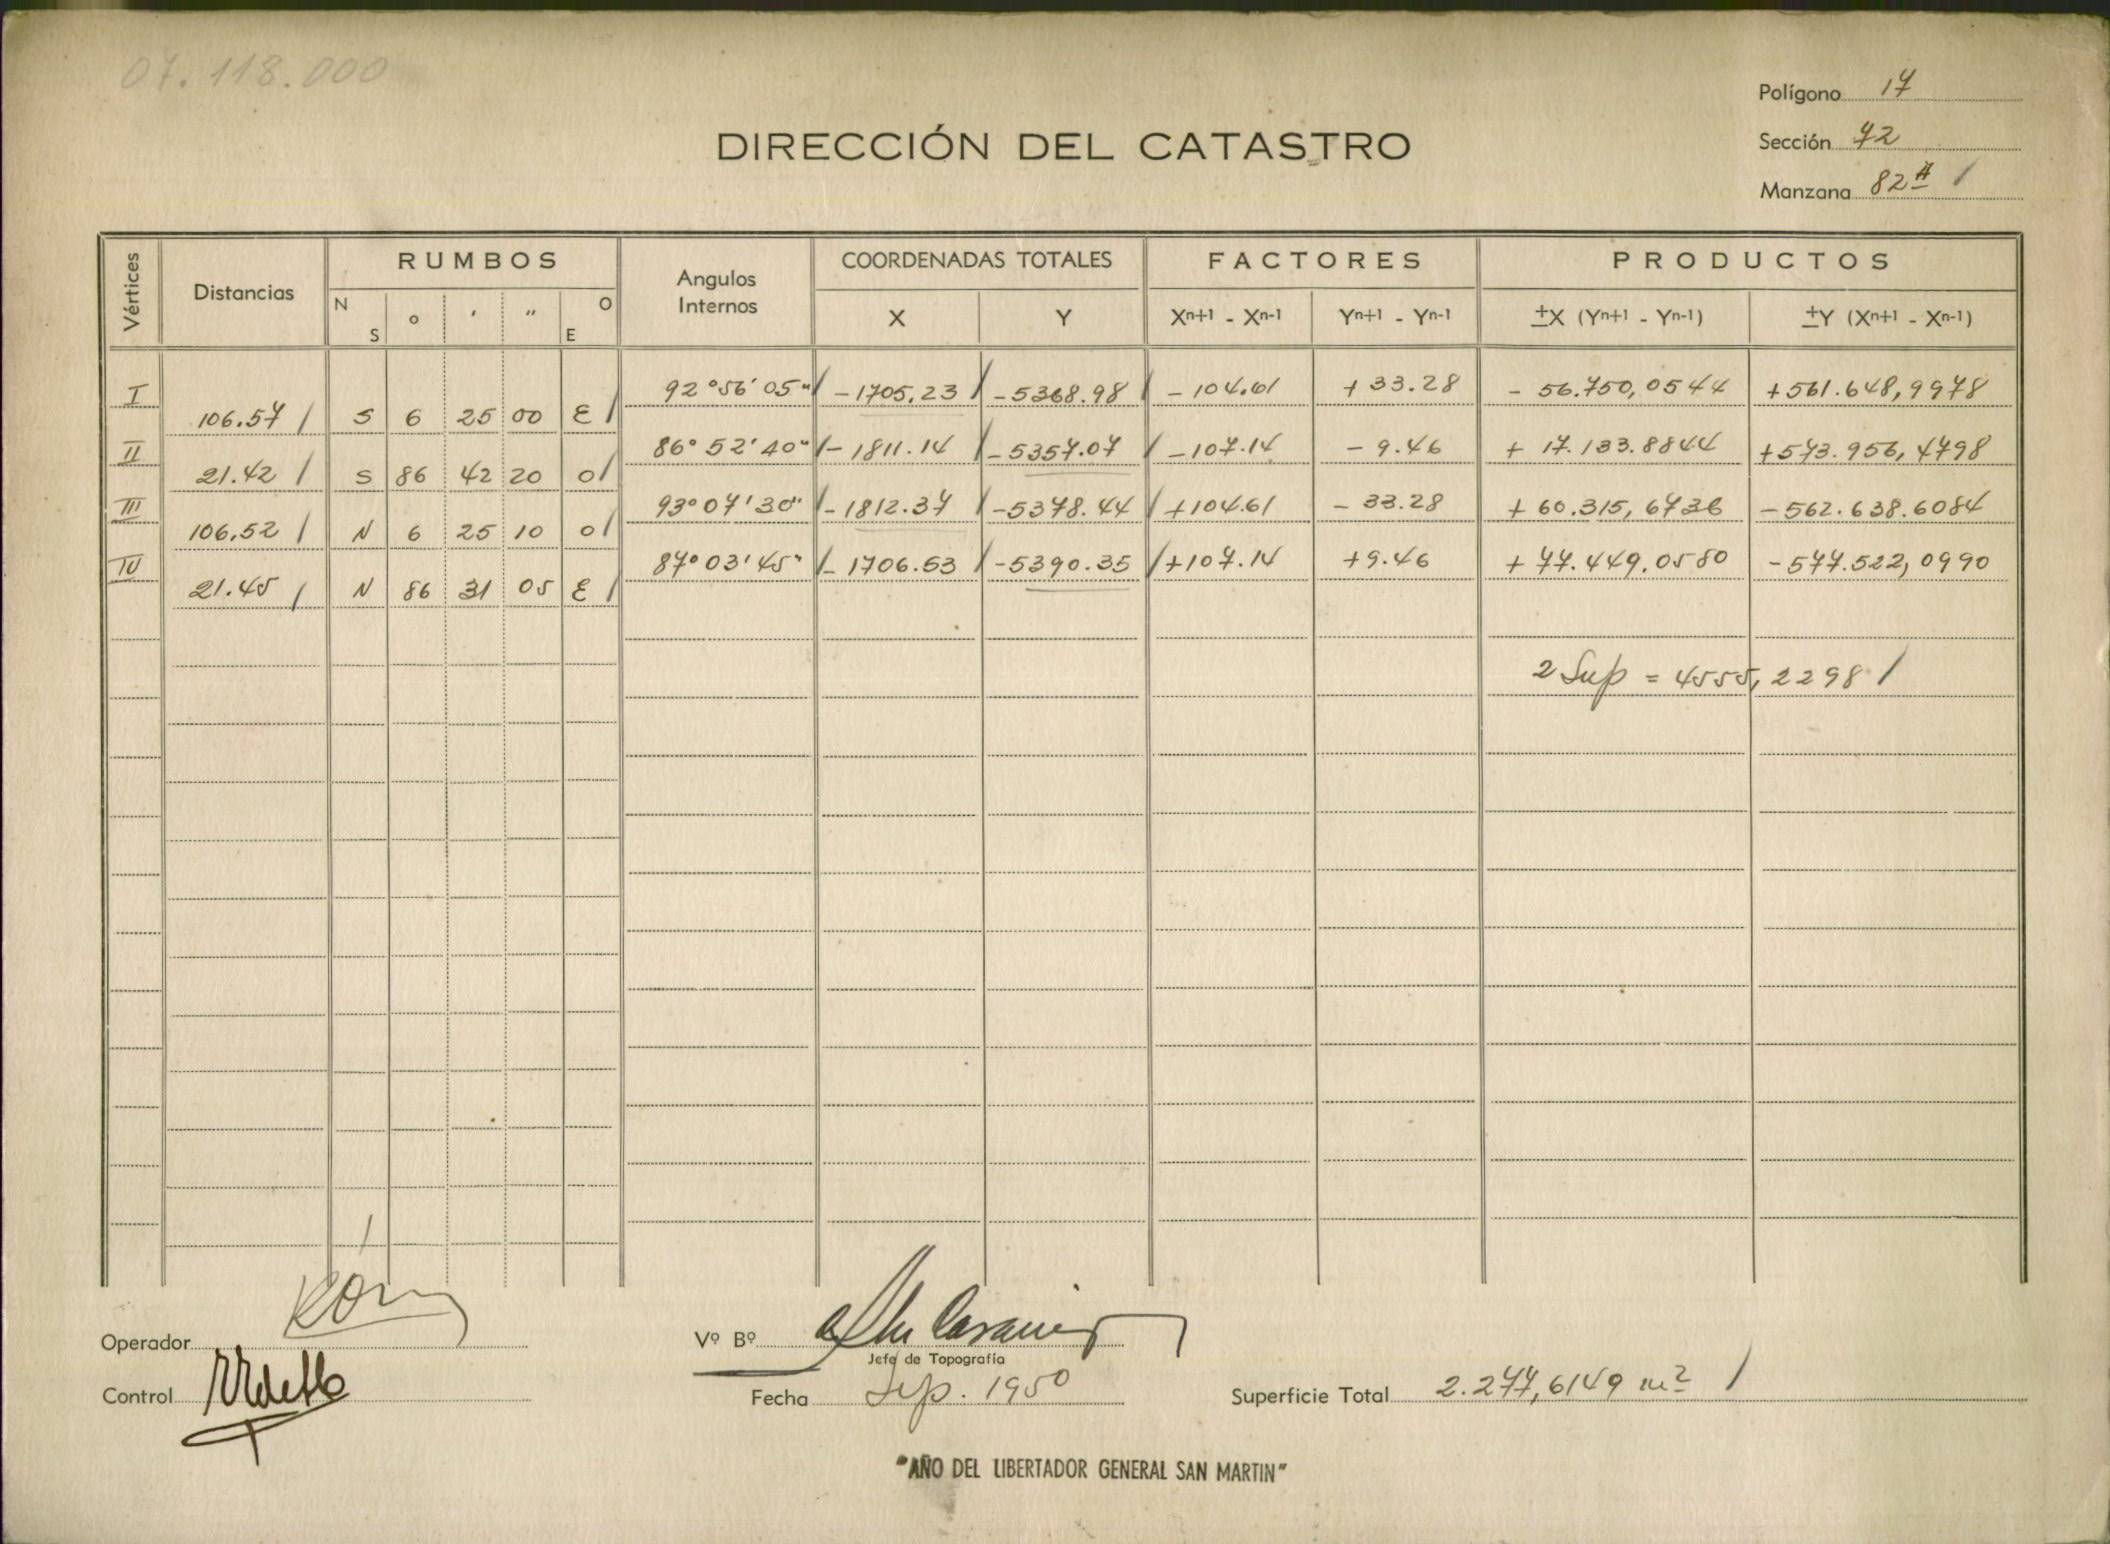 07.118.000
Polígono 17
DIRECCIÓN DEL CATASTRO
Sección 72
Manzana 82A /
Vértices Distancias RUMBOS Angulos Internos COORDENADAS TOTALES FACTORES PRODUCTOS
N S ° ' " O E X Y Xn+1 - Xn-1 Yn+1 - Yn-1 ±X (Yn+1 - Yn-1) ±Y (Xn+1 - Xn-1)
I 92°56'05" / -1705.23 / -5368.98 / -104.61 +33.28 -56.750,0544 +561.648,9978
106.57 / S 6 25 00 E /
II 86°52'40" / -1811.14 / -5357.07 / -107.14 -9.46 +17.133.8844 +573.956,4798
21.42 / S 86 42 20 O /
III 93°07'30" / -1812.37 / -5378.44 / +104.61 -33.28 +60.315,6736 -562.638.6084
106.52 / N 6 25 10 O /
IV 87°03'45" / -1706.53 / -5390.35 / +107.14 +9.46 +77.449.0580 -577.522,0990
21.45 / N 86 31 05 E /
2 Sup = 4555,2298 /
Operador
Vº Bº
Jefe de Topografía
Control
Fecha Sep. 1950
Superficie Total 2.277,6149 m2 /
"AÑO DEL LIBERTADOR GENERAL SAN MARTIN"